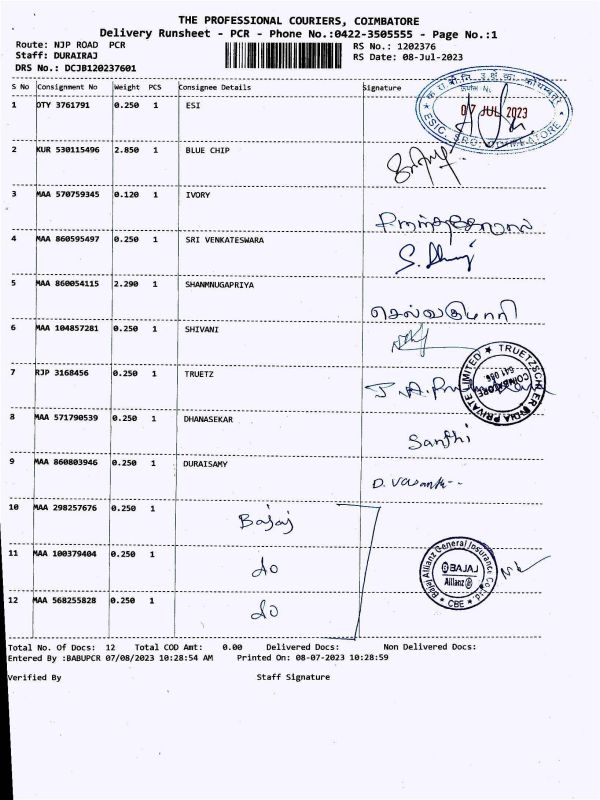 THE PROFESSIONAL COURIERS, COIMBATORE
Delivery Runsheet - PCR - Phone No.:0422-3505555 - Page No.:1
Route: NJP ROAD PCR
RS No.: 1202376
Staff: DURAIRAJ
RS Date: 08-Jul-2023
DRS No.: DCJB120237601
S No Consignment No Weight PCS Consignee Details Signature
07 JUL 2023
1 OTY 3761791 0.250 1 ESI
2 KUR 530115496 2.850 1 BLUE CHIP
3 MAA 570759345 0.120 1 IVORY
4 MAA 860595497 0.250 1 SRI VENKATESWARA
5 MAA 860054115 2.290 1 SHANMNUGAPRIYA
6 MAA 104857281 0.250 1 SHIVANI
7 RJP 3168456 0.250 1 TRUETZ
TRUETZSCHLER INDIA PRIVATE LIMITED
COIMBATORE
8 MAA 571790539 0.250 1 DHANASEKAR
Santhi
9 MAA 860803946 0.250 1 DURAISAMY
10 MAA 298257676 0.250 1 Bajaj
11 MAA 100379404 0.250 1 do
Bajaj Allianz General Insurance Co. Ltd.
BAJAJ
Allianz
CBE
12 MAA 568255828 0.250 1 do
Total No. Of Docs: 12 Total COD Amt: 0.00 Delivered Docs: Non Delivered Docs:
Entered By :BABUPCR 07/08/2023 10:28:54 AM Printed On: 08-07-2023 10:28:59
Verified By Staff Signature